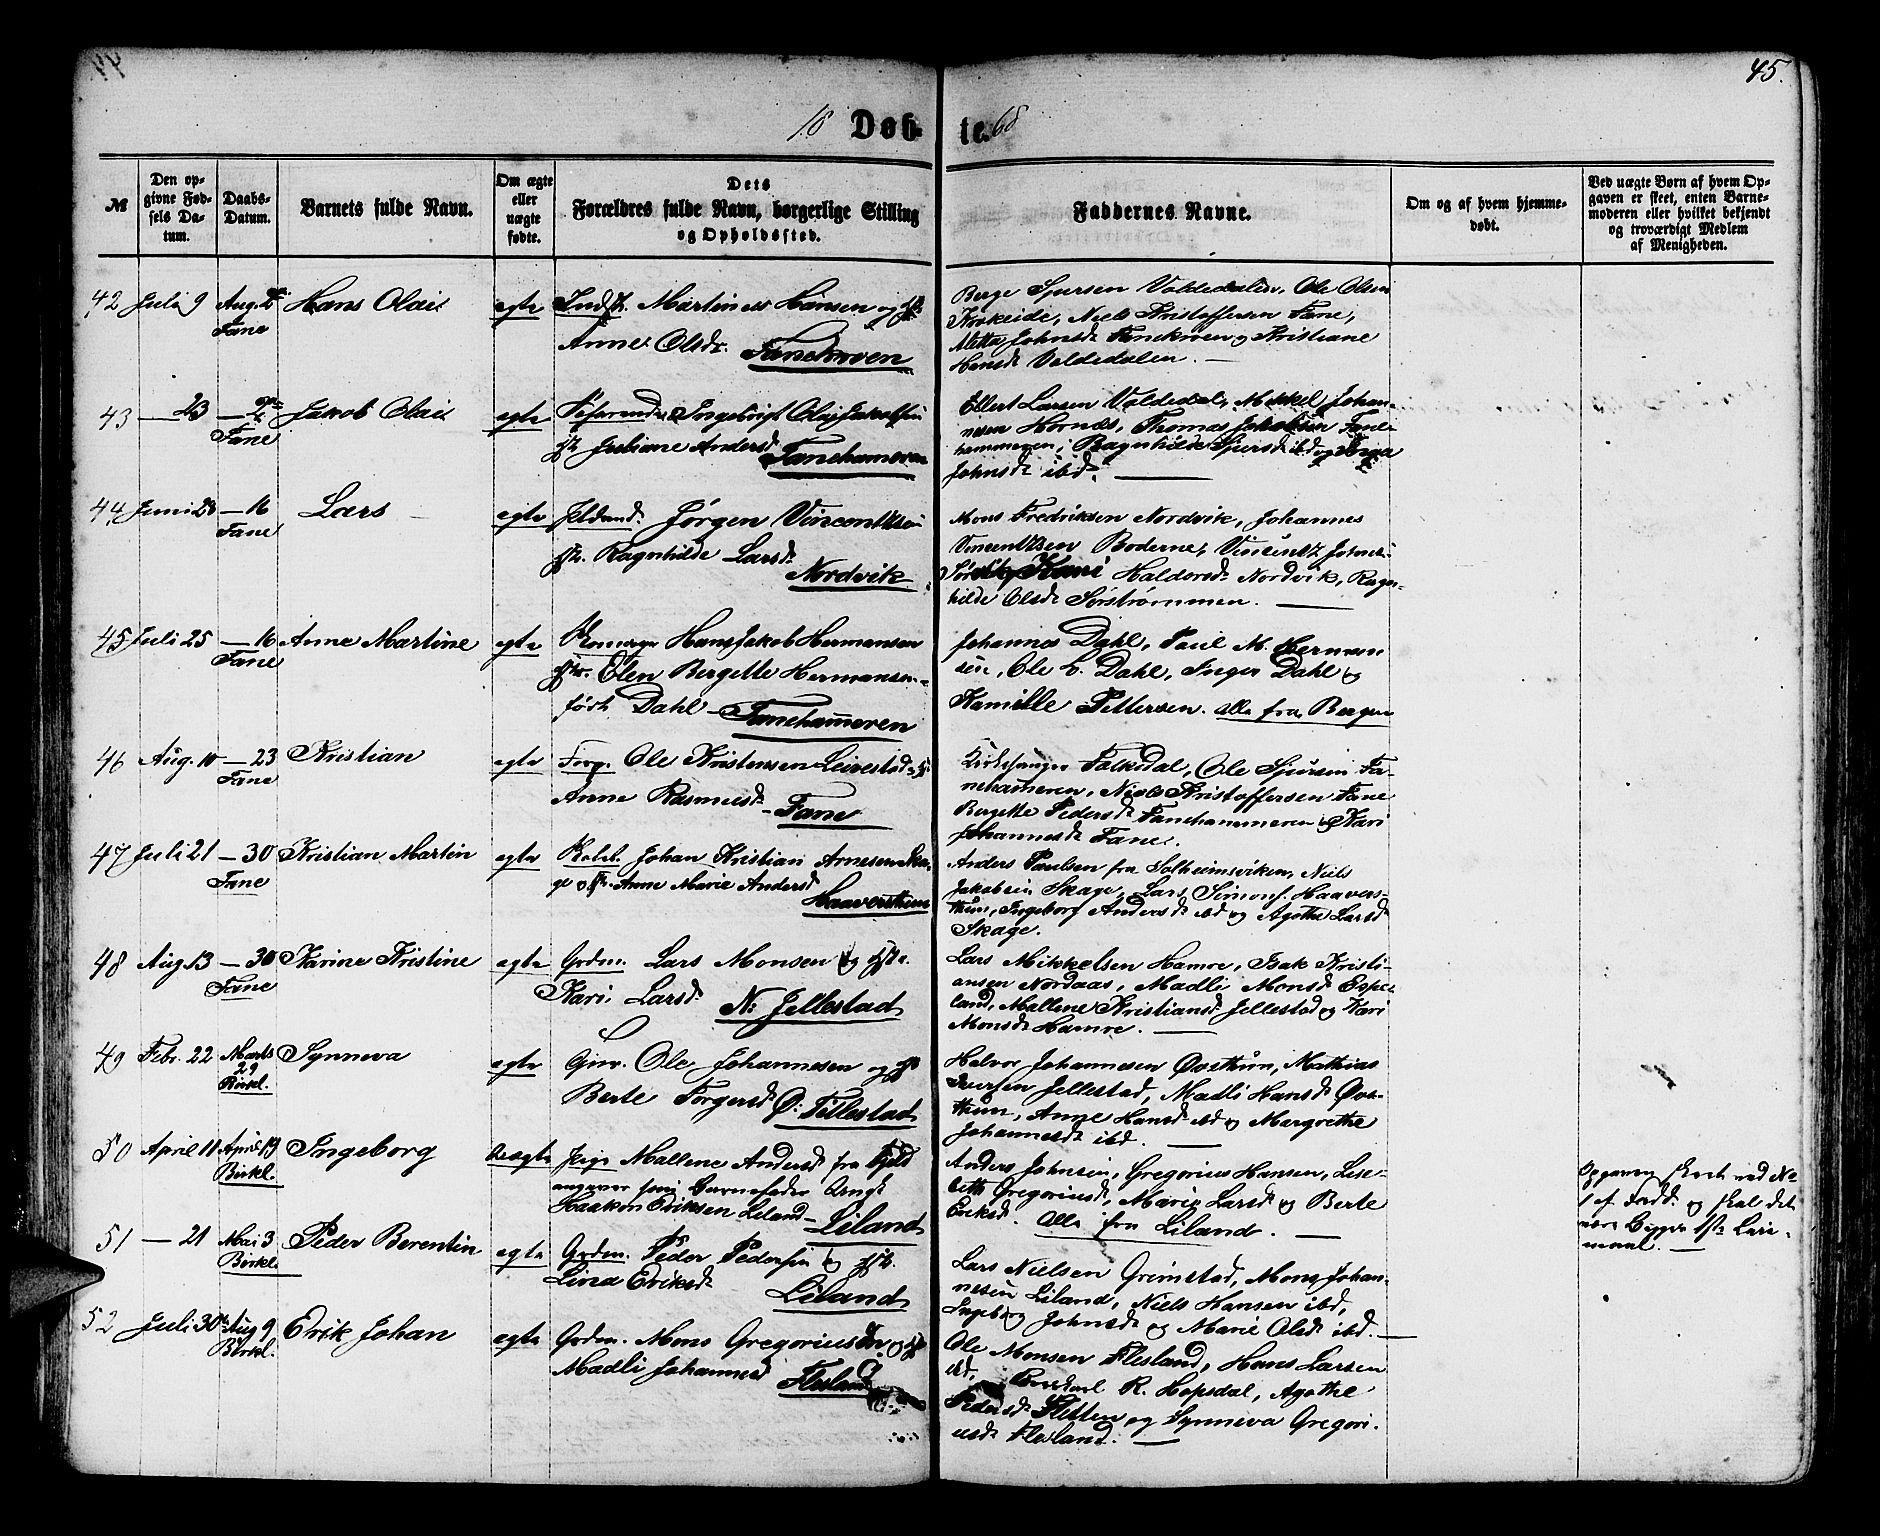 45.
18 Døb- te. 68
№
Den op-
givne Fød-
sels Da-
tum.
Daabs-
Datum.
Barnets fulde Navn.
Om ægte
eller
uægte
fødte.
Dets
Forældres fulde Navn, borgerlige Stilling
og Opholdssted.
Faddernes Navne.
Om og af hvem hjemme-
døbt.
Ved uægte Børn af hvem Op-
gaven er skeet, enten Barne-
moderen eller hvilket bekjendt
og troværdigt Medlem
af Menigheden.
42 Juli 9 Aug. Hans Olai egte Indst. Martines Hansen og
Fane
Anne Olsdr. Fanekroven
Berge Sjursen Valdedalen, Ole Olsen
Krokeide, Niels Kristoffersen Fane,
Aletta Johnsd. Fanekroven og Kristiane
Hansd. Valdedalen. —
43 — 23 — Jakob Olai egte Ingebrigt Olai Jakobsen
Fane
Juliane Andersd. Fanehameren
Ellert Larsen Valdedal, Mikkel Johan-
nesen Hornæs, Thomas Jakobsen Fane-
hammeren, Ragnhilde Sjursd. ibd og
Johnsd. ibd. —
44 Juni 23 — 16 Lars — egte Jørgen Vincentsen
Fane
Ragnhilde Larsd.
Nordvik
Mons Fredriksen Nordvik, Johannes
Vincentsen Boderne, Vincentz
Kari Haldorsd. Nordvik, Ragn-
hilde Olsd. Sørstrømmen. —
45 Juli 25 — 16 Anne Martine egte Hans Jakob Hermansen
Fane
Olen Bergette Hermansen
født Dahl — Fanehammeren
Johannes Dahl, Paul M. Herman
sen, Ole C. Dahl, Inger Dahl og
Kamille Pettersen. alle fra Bergen
46 Aug. 10 — 23 Kristian egte Forp. Ole Kristensen Leirestad
Fane
Anne Rasmusd. — Fane
Kirkesanger Falkedal, Ole Sjursen Fa-
nehameren, Niels Kristoffersen Fane
Bergette Pedersd. Fanehammeren og Kari
Johannesd. Fane.
47 Juli 21 — 30 Kristian Martin egte Johan Kristian Arnesen Ska-
Fane
ge og Anne Marie Andersd.
Haaversthun
Anders Paulsen fra Solheimsviken, Niels
Jakobsen Skage, Lars Simons. Haavers-
thun, Ingeborg Andersd. ibd og Agathe Larsd.
Skage.
48 Aug. 13 — 30 Karine Kristine egte Grdm. Lars Monsen og
Fane
Kari Larsd. N: Jellestad
Lars Mikkelsen Hamre, Isak Kristi-
ansen Nordaas, Madli Monsd. Espe-
land, Mallene Kristiansd. Jellestad og Kari
Monsd. Hamre. —
49 Febr. 22 Marts Synneva egte Ole Johannesen og
29
Birkl.
Berte Torgersd. Ø: Tillestad
Halvor Johannesen Øvsthun, Mathias
Iversen Jellestad, Madli Hansd. Øvs-
thun, Anne Hansd. ibd og Margrethe
Johannesd. ibd. —
50 April 11 April 19 Ingeborg uægte Pige Mallene Andersd. fra
Birkl.
angiver som Barnefader
Haakon Eriksen Liland — Liland
Anders Johnsen, Gregorius Hansen, Lise-
beth Gregoriusd., Marie Larsd. og Berte
Eriksd. Alle fra Liland. —
Opgaven skeet ved No
1 af Fadd. og skal det
være 1ste Leier-
maal. —
51 — 21 Mai 3 Peder Berentin egte Grdm. Peder Pedersen og
Birkl.
Eriksd.
Liland
Lars Nielsen Grimstad, Mons Johan-
nesen Liland, Niels Hansen ibd,
Ingeborg Johnsd. og Marie Olsd. ibd. —
52 Juli 30 Aug 9 Erik Johan egte Grdm. Mons Gregoriussen og
Birkl.
Madli Johannesd.
Flesland
Ole Monsen Flesland, Hans Larsen
ibd, R. Hopsdal, Agathe
Pedersd. Sletten og Synneva Gregori-
usd. Flesland. —